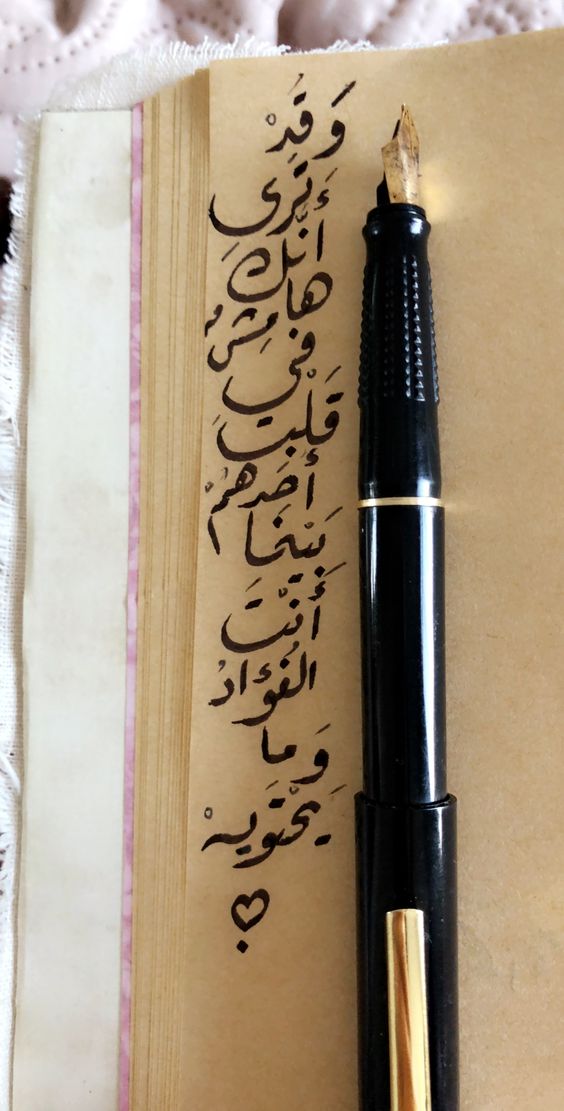 وَقَدْ
تَرىِ
أَنّك
هامِشٌ
في
قَلْبِ
أَحَدِهُمْ
بَيْنَمَا
أَنْتَ
الفُؤادُ
وَمَا
يَحْتَويهْ